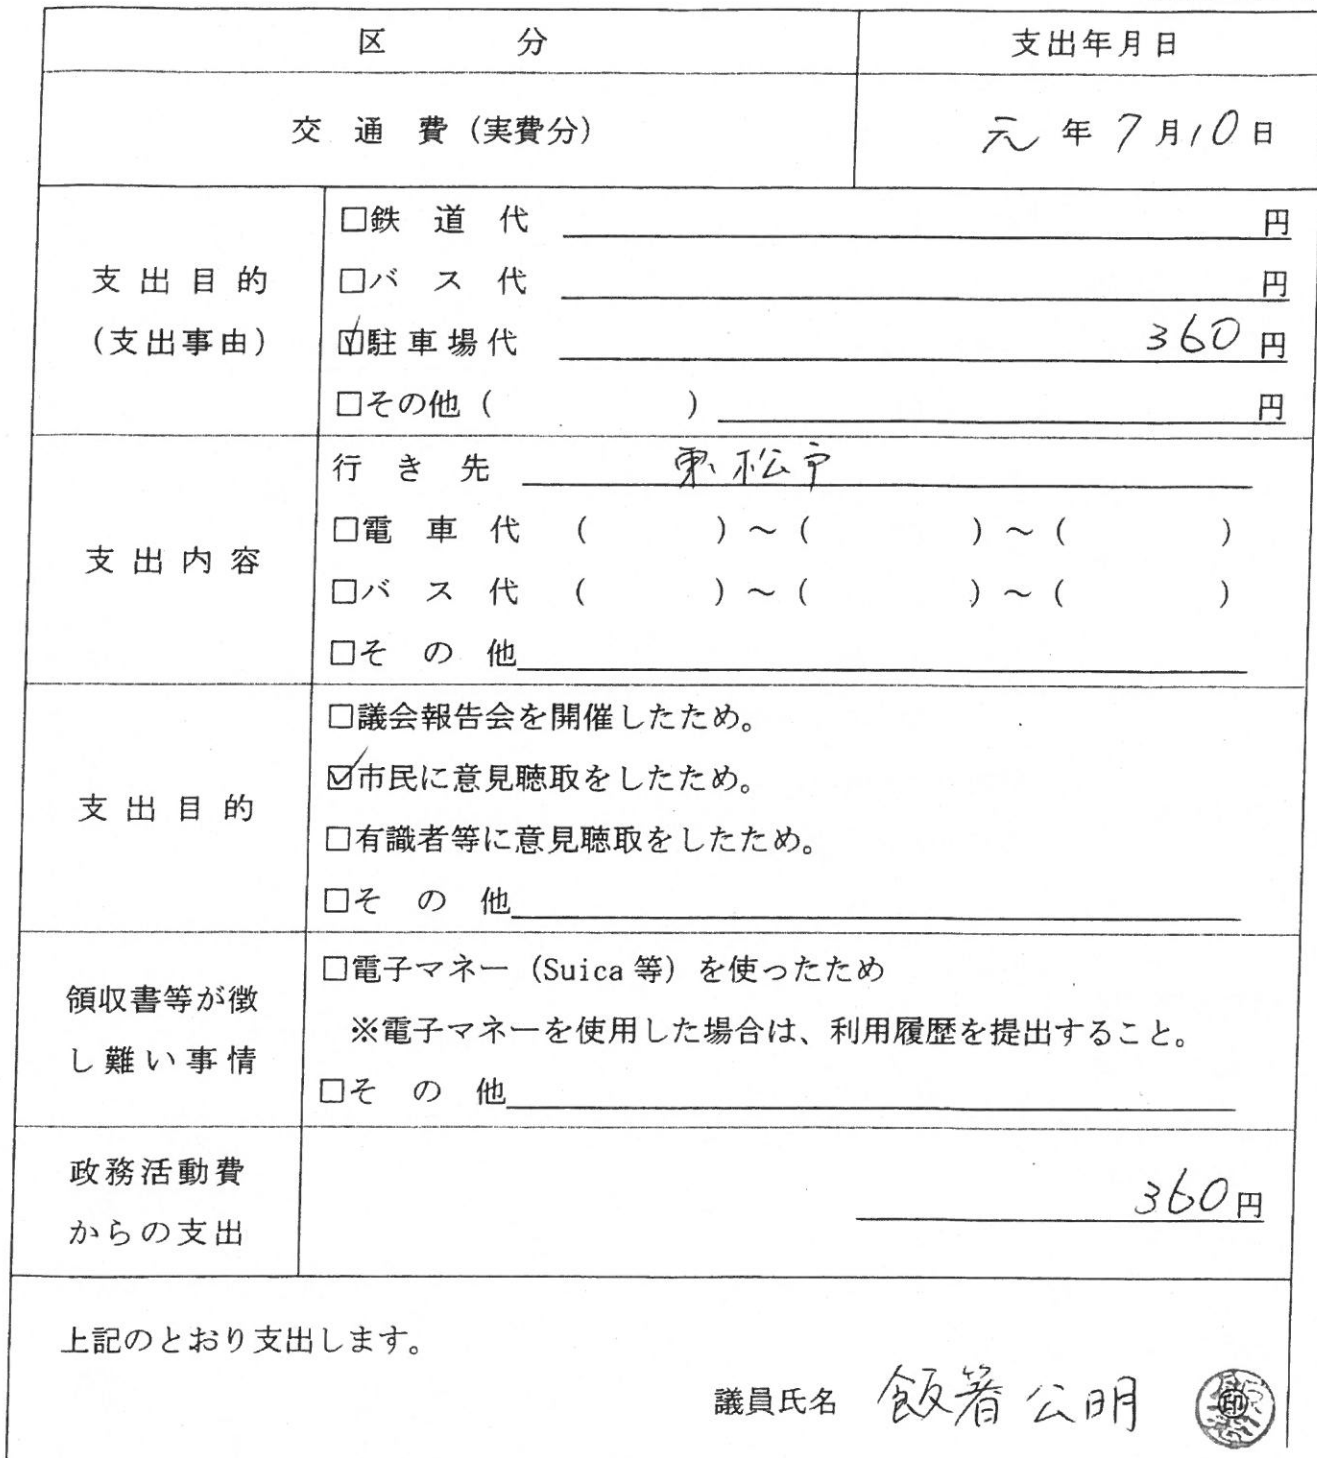 区　　　　分　　支出年月日
交　通　費（実費分）　　元年7月10日
支出目的
（支出事由）
□鉄　道　代　　円
□バ　ス　代　　円
☑駐車場代　　360円
□その他（　　　　　　）　　円
支出内容
行　き　先　　東松戸
□電　車　代　（　　　　）～（　　　　　）～（　　　　　）
□バ　ス　代　（　　　　）～（　　　　　）～（　　　　　）
□そ　の　他
支出目的
□議会報告会を開催したため。
☑市民に意見聴取をしたため。
□有識者等に意見聴取をしたため。
□そ　の　他
領収書等が徴
し難い事情
□電子マネー（Suica等）を使ったため
※電子マネーを使用した場合は、利用履歴を提出すること。
□そ　の　他
政務活動費
からの支出
360円
上記のとおり支出します。
議員氏名　飯箸公明　㊞